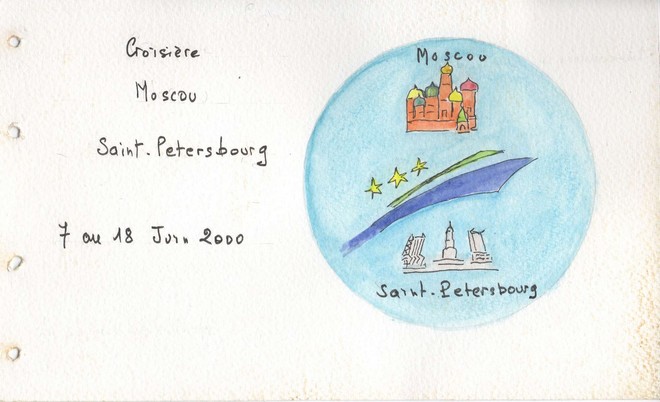 Croisière
Moscou
Saint-Petersbourg
7 au 18 Juin 2000
Moscou
Saint-Petersbourg